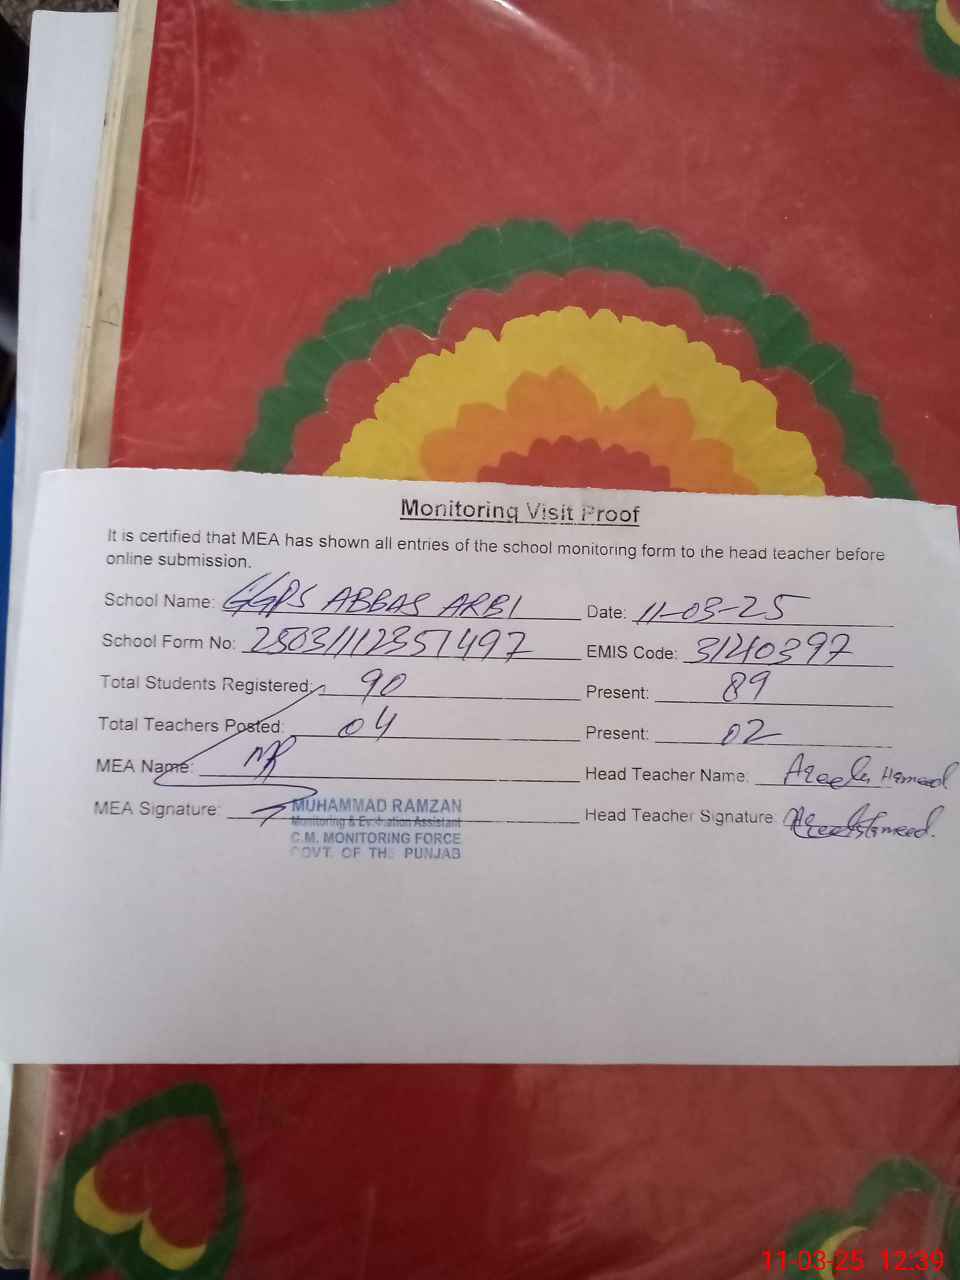 Monitoring Visit Proof
It is certified that MEA has shown all entries of the school monitoring form to the head teacher before
online submission.
School Name: GGPS ABBAS ARBI Date: 11-03-25
School Form No: 250311112351497 EMIS Code: 31240397
Total Students Registered: 90 Present: 89
Total Teachers Posted: 04 Present: 02
MEA Name: MR Head Teacher Name: Hameed
MEA Signature: Head Teacher Signature: Hameed.
MUHAMMAD RAMZAN
Monitoring & Evaluation Assistant
C.M. MONITORING FORCE
GOVT. OF THE PUNJAB
11-03-25 12:39